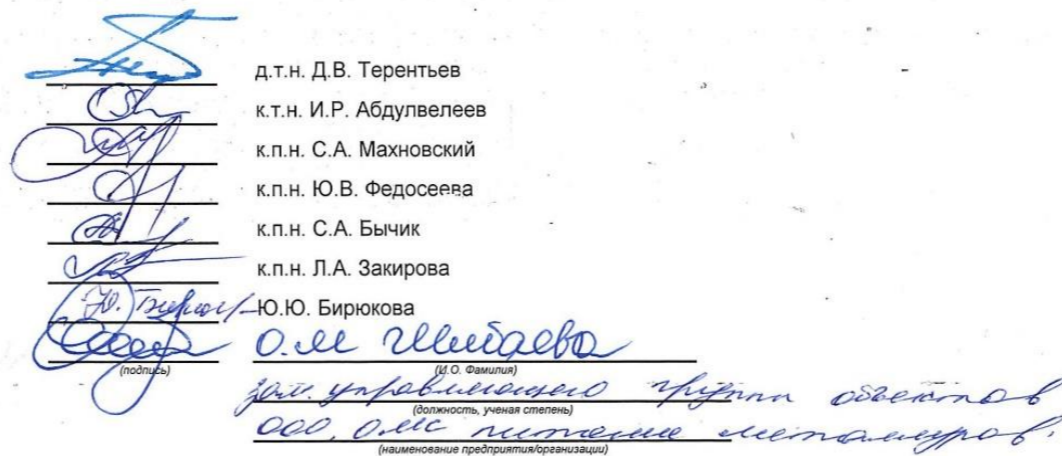 д.т.н. Д.В. Терентьев
к.т.н. И.Р. Абдулвелеев
к.п.н. С.А. Махновский
к.п.н. Ю.В. Федосеева
к.п.н. С.А. Бычик
к.п.н. Л.А. Закирова
Ю.Ю. Бирюкова
О.М Шибаева
(подпись) (И.О. Фамилия)
зам. управляющего группы объектов
(должность, ученая степень)
ООО "ОМС питание металлургов"
(наименование предприятия/организации)